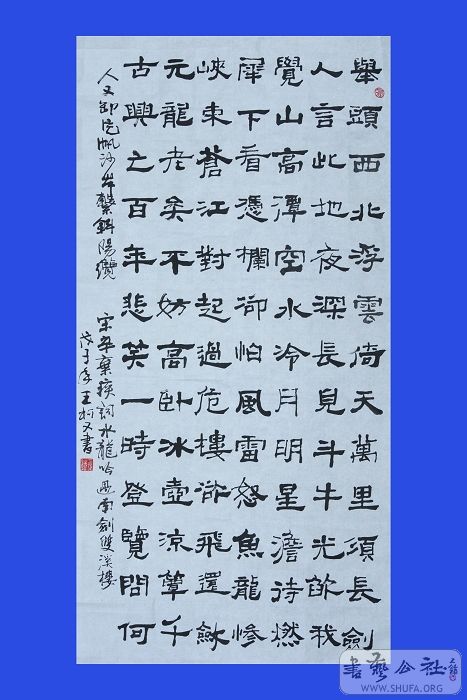 舉頭西北浮雲倚天萬里須長劍
人言此地夜深長見斗牛光焰我
覺山高潭空水冷月明星澹待燃
犀下看憑欄卻怕風雷怒魚龍慘
峽束蒼江對起過危樓欲飛還斂
元龍老矣不妨高臥冰壺涼簟千
古興亡百年悲笑一時登覽問何
人又卸片帆沙岸繫斜陽纜 宋辛棄疾詞水龍吟過南劍雙溪樓
戊子年王柯文書
書藝公社
WWW.SHUFA.ORG